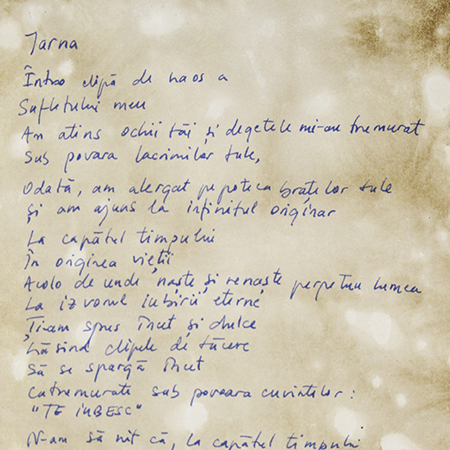 Iarna
Într-o clipă de haos a
Sufletului meu
Am atins ochii tăi și degetele mi-au tremurat
Sub povara lacrimilor tale,
Odată, am alergat pe poteca brațelor tale
Și am ajuns la infinitul originar
La capătul timpului
În originea vieții
Acolo de unde naște și renaște perpetuu lumea
La izvorul iubirii eterne
Ți-am spus încet și dulce
Lăsînd clipele de tăcere
Să se spargă încet
Cutremurate sub povoara cuvintelor:
"TE IUBESC"
N-am să uit că, la capătul timpului